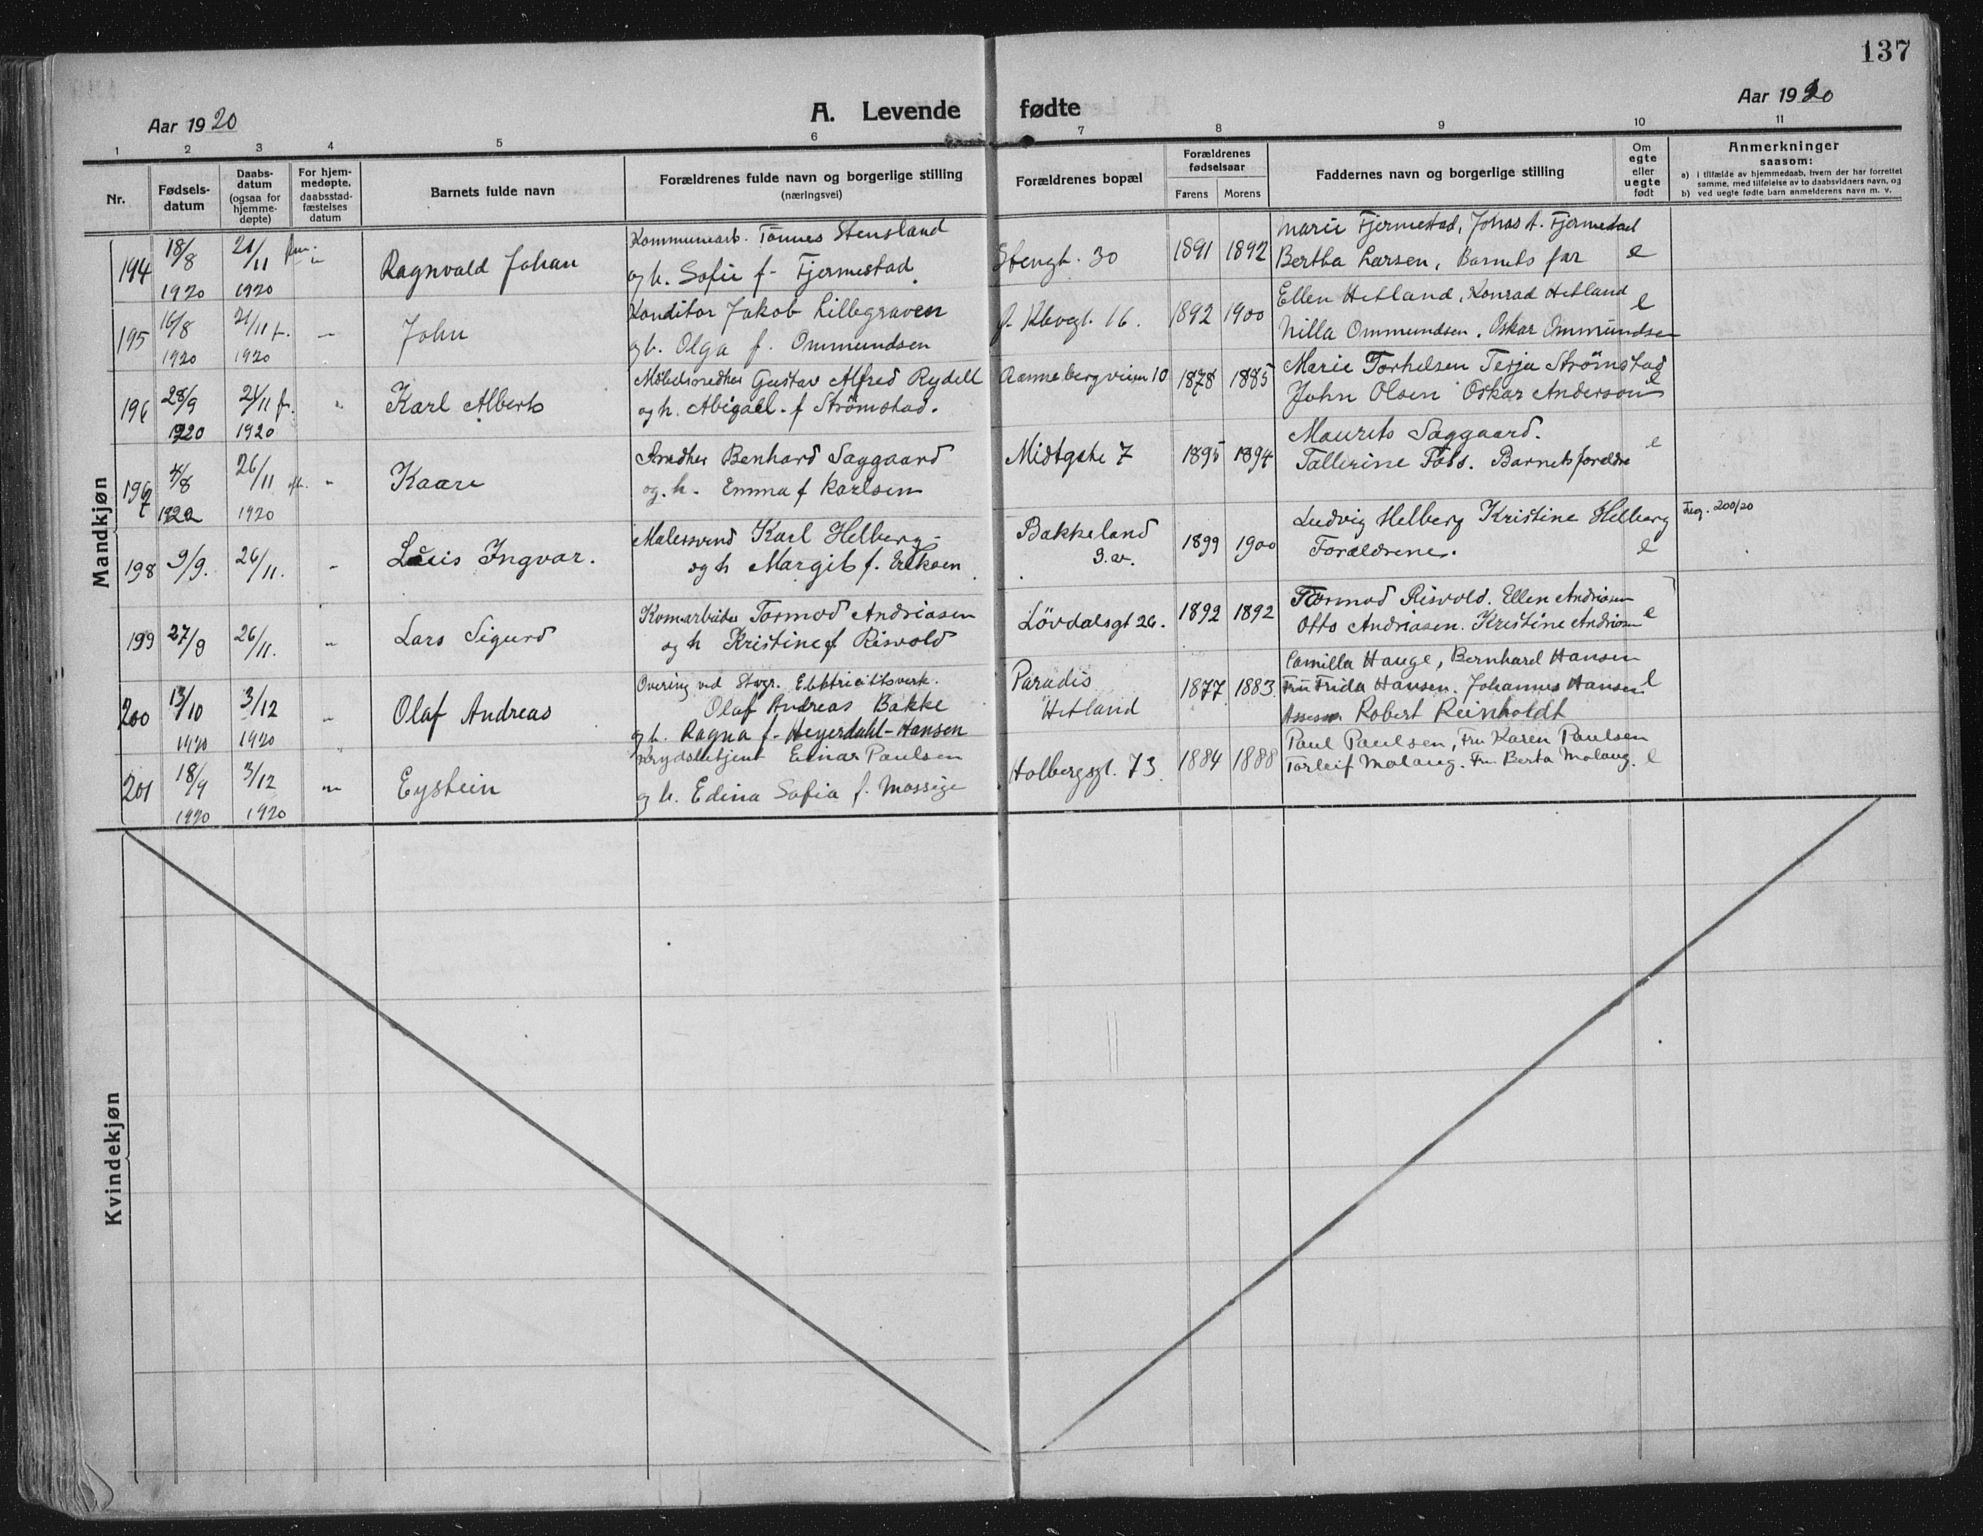 137
Aar 1920
A. Levende fødte
Aar 1920
1 2 3 4 5 6 7 8 9 10 11
Nr.
Fødsels-
datum
Daabs-
datum
(ogsaa for
hjemme-
døpte)
For hjem-
medøpte,
daabsstad-
fæstelses
datum
Barnets fulde navn
Forældrenes fulde navn og borgerlige stilling
(næringsvei)
Forældrenes bopæl
Forældrenes
fødselsaar
Farens Morens
Faddernes navn og borgerlige stilling
Om
egte
eller
uegte
født
Anmerkninger
saasom:
a) i tilfælde av hjemmedaab, hvem der har forrettet
samme, med tilføielse av to daabsvidners navn, og
b) ved uegte fødte barn anmelderens navn m. v.
Mandkjøn
194 18/8 1920 21/11 1920 Ragnvald Johan
Kommunearb. Tönnes Stensland
og h. Sofie f. Fjermestad
Stengt. 30 1891 1892
Marie Fjermestad, Jonas A. Fjermestad
Bertha Larsen, Barnets far e
195 16/8 1920 21/11 f. 1920 John
Konditor Jakob Lillegraven
og h. Olga f. Ommundsen
Ø. Klevgt. 16. 1892 1900
Ellen Hetland, Konrad Hetland
Nilla Ommundsen. Oskar Ommundsen e
196 28/9 1920 21/11 f. 1920 Karl Alberts
Møbelsnedker Gustav Alfred Rydell
og h. Abigael. f Strömstad.
Rannebergveien 10 1878 1885
Marie Torkelsen Terje Strömstad
John Olsen Oskar Anderson e
197 4/8 1920 26/11 1920 Kaare
Snedker Benhard Saggaard
og. h. Emma f Karlsen
Midtgate 7 1895 1894
Maurits Saggaard.
Tallerine Foss. Barnets forældre e
198 9/9. 26/11. Louis Ingvar.
Malersvend Karl Helberg
og h Margit f. Eriksen
Bakkeland
3. v. 1899 1900
Ludvig Helberg Kristine Helberg
Forældrene. e
200/20
199 27/8 26/11. Lars Sigurd
Komarbeider Tormod Andriasen
og h Kristine f Risvold
Lövdalsgt 26. 1892 1892
Tormod Risvold. Ellen Andriasen
Otto Andriasen. Kristine Andriasen e
200 13/10 1920 3/12 1920 Olaf Andreas
Overing ved Stvgr. Elektricitetsverk.
Olaf Andreas Bakke
og h. Ragna f. Heyerdahl-Hansen
Paradis
Hetland 1877 1883
Camilla Hauge, Bernhard Hansen
Fru Frida Hansen. Johannes Hansen e
Assessor Robert Reinholdt
201 18/9 1920 3/12 1920 Eystein
Krydsbetjent Einar Paulsen
og h. Edina Sofia f. Mossige
Holbergsgt. 73. 1884 1888
Paul Paulsen, Fru Karen Paulsen
Torleif Molaug. Fru Berta Molaug. e
Kvindekjøn